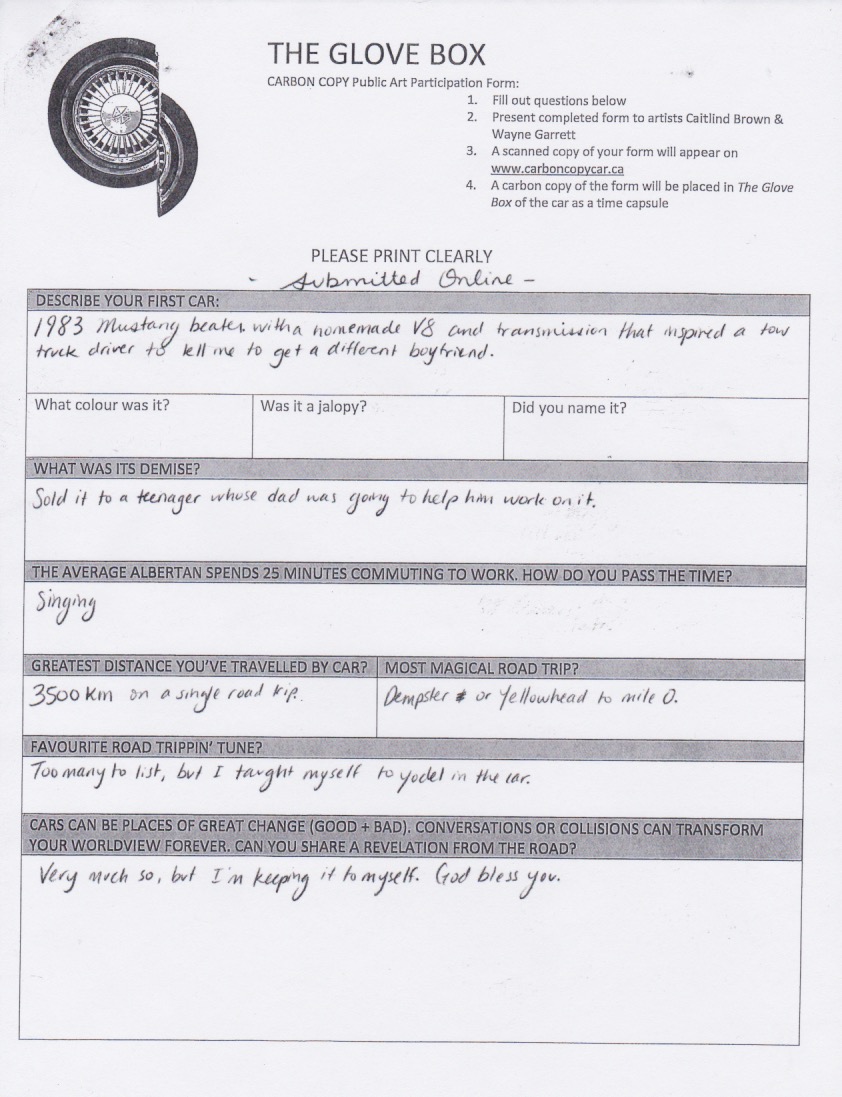 THE GLOVE BOX
CARBON COPY Public Art Participation Form:
1. Fill out questions below
2. Present completed form to artists Caitlind Brown &
Wayne Garrett
3. A scanned copy of your form will appear on
www.carboncopycar.ca
4. A carbon copy of the form will be placed in The Glove
Box of the car as a time capsule
PLEASE PRINT CLEARLY
- Submitted Online -
DESCRIBE YOUR FIRST CAR:
1983 Mustang beater with a homemade V8 and transmission that inspired a tow
truck driver to tell me to get a different boyfriend.
What colour was it? Was it a jalopy? Did you name it?
WHAT WAS ITS DEMISE?
Sold it to a teenager whose dad was going to help him work on it.
THE AVERAGE ALBERTAN SPENDS 25 MINUTES COMMUTING TO WORK. HOW DO YOU PASS THE TIME?
Singing
GREATEST DISTANCE YOU'VE TRAVELLED BY CAR? MOST MAGICAL ROAD TRIP?
3500 km on a single road trip. Dempster or Yellowhead to mile 0.
FAVOURITE ROAD TRIPPIN' TUNE?
Too many to list, but I taught myself to yodel in the car.
CARS CAN BE PLACES OF GREAT CHANGE (GOOD + BAD). CONVERSATIONS OR COLLISIONS CAN TRANSFORM
YOUR WORLDVIEW FOREVER. CAN YOU SHARE A REVELATION FROM THE ROAD?
Very much so, but I'm keeping it to myself. God bless you.